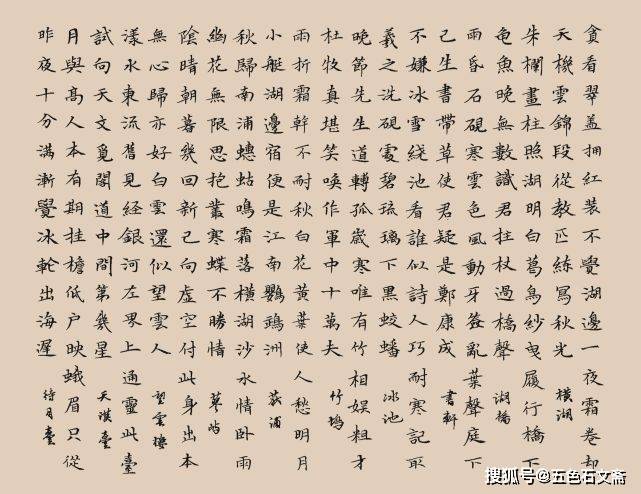 貪看翠盖拥紅装不覺湖邊一夜霜卷却
天機雲錦段從教匹練寫秋光 橫湖
朱欄畫柱照湖明白葛烏紗曳履行橋下
龟魚晚無數識君拄杖過橋聲 湖橋
雨昏石硯寒雲色風動牙签亂葉聲庭下
已生書帶草使君疑是鄭康成 書軒
不嫌冰雪繞池看誰似詩人巧耐寒記取
羲之洗硯處碧琉璃下黑蛟蟠 冰池
晚節先生道轉孤歲寒唯有竹相娱粗才
杜牧真堪笑喚作軍中十萬夫 竹塢
雨折霜幹不耐秋白花黃葉使人愁明月
小艇湖邊宿便是江南鸚鵡洲 荻浦
秋歸南浦蟪蛄鳴霜落橫湖沙水情卧雨
幽花無限思抱叢寒蝶不勝情 蓼屿
陰晴朝暮幾回新已向虛空付此身出本
無心歸亦好白雲還似望雲人 望雲樓
漾水東流舊見經銀河左界上通靈此臺
試向天文覓閣道中間第幾星 天漢臺
月與高人本有期挂檐低户映蛾眉只從
昨夜十分滿漸覺冰輪出海遲 待月臺
搜狐号@五色石文斋